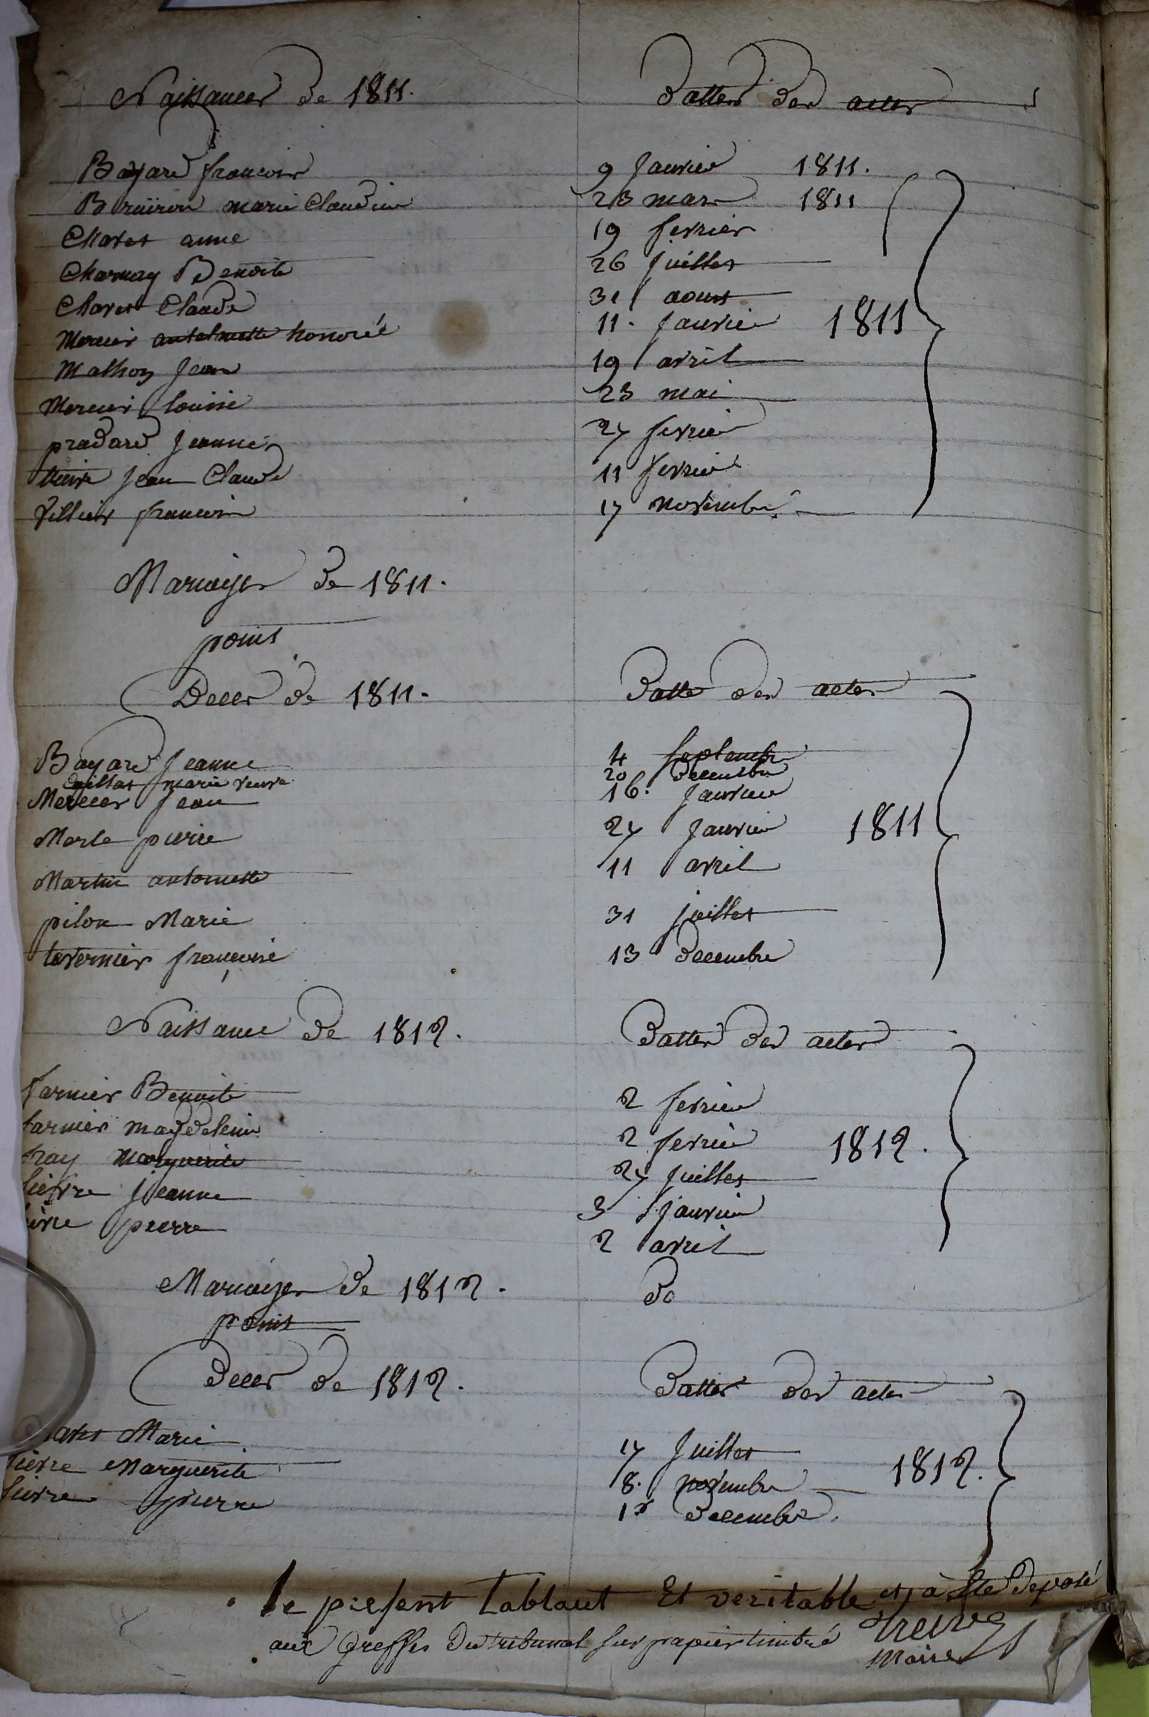 Naissances de 1811. Dattes des actes
Bayard francois 9 Janvier 1811.
marie Claudine 23 mars 1811
Charet anne 19 fevrier
Charnay Benoite 26 Juillet
Charet Claude 31 aoust
Mercier antelmette honorée 11. Janvier 1811
Mathon Jean 19 avril
Mercier Louise 23 mai
pradard Jeanne 27 fevrier
Jean Claude 11 fevrier
Villier francois 17 novembre
Mariages de 1811.
point
Deces de 1811. Datte des actes
Bayard Jeanne 4 septembre
marie veuve 20 decembre
Mercier Jean 16. Janvier
Merle pierre 27 Janvier 1811
Martin antoinette 11 avril
pilon Marie 31 juillet
tavernier francoise 13 decembre
Naissance de 1812. Dattes des actes
farnier Benoite 2 fevrier
farnier magdeleine 2 fevrier 1812.
fray marguerite 27 Juillet
Jeanne 3 janvier
pierre 2 avril
Mariages de 1812. do
point
Deces de 1812. Dattes des actes
Marie 17 Juillet
Marguerite 8. novembre 1812.
pierre 1r decembre.
le present tablaut Et veritable et à Ete deposé
aux greffes du tribunal sur papier timbré
Maire